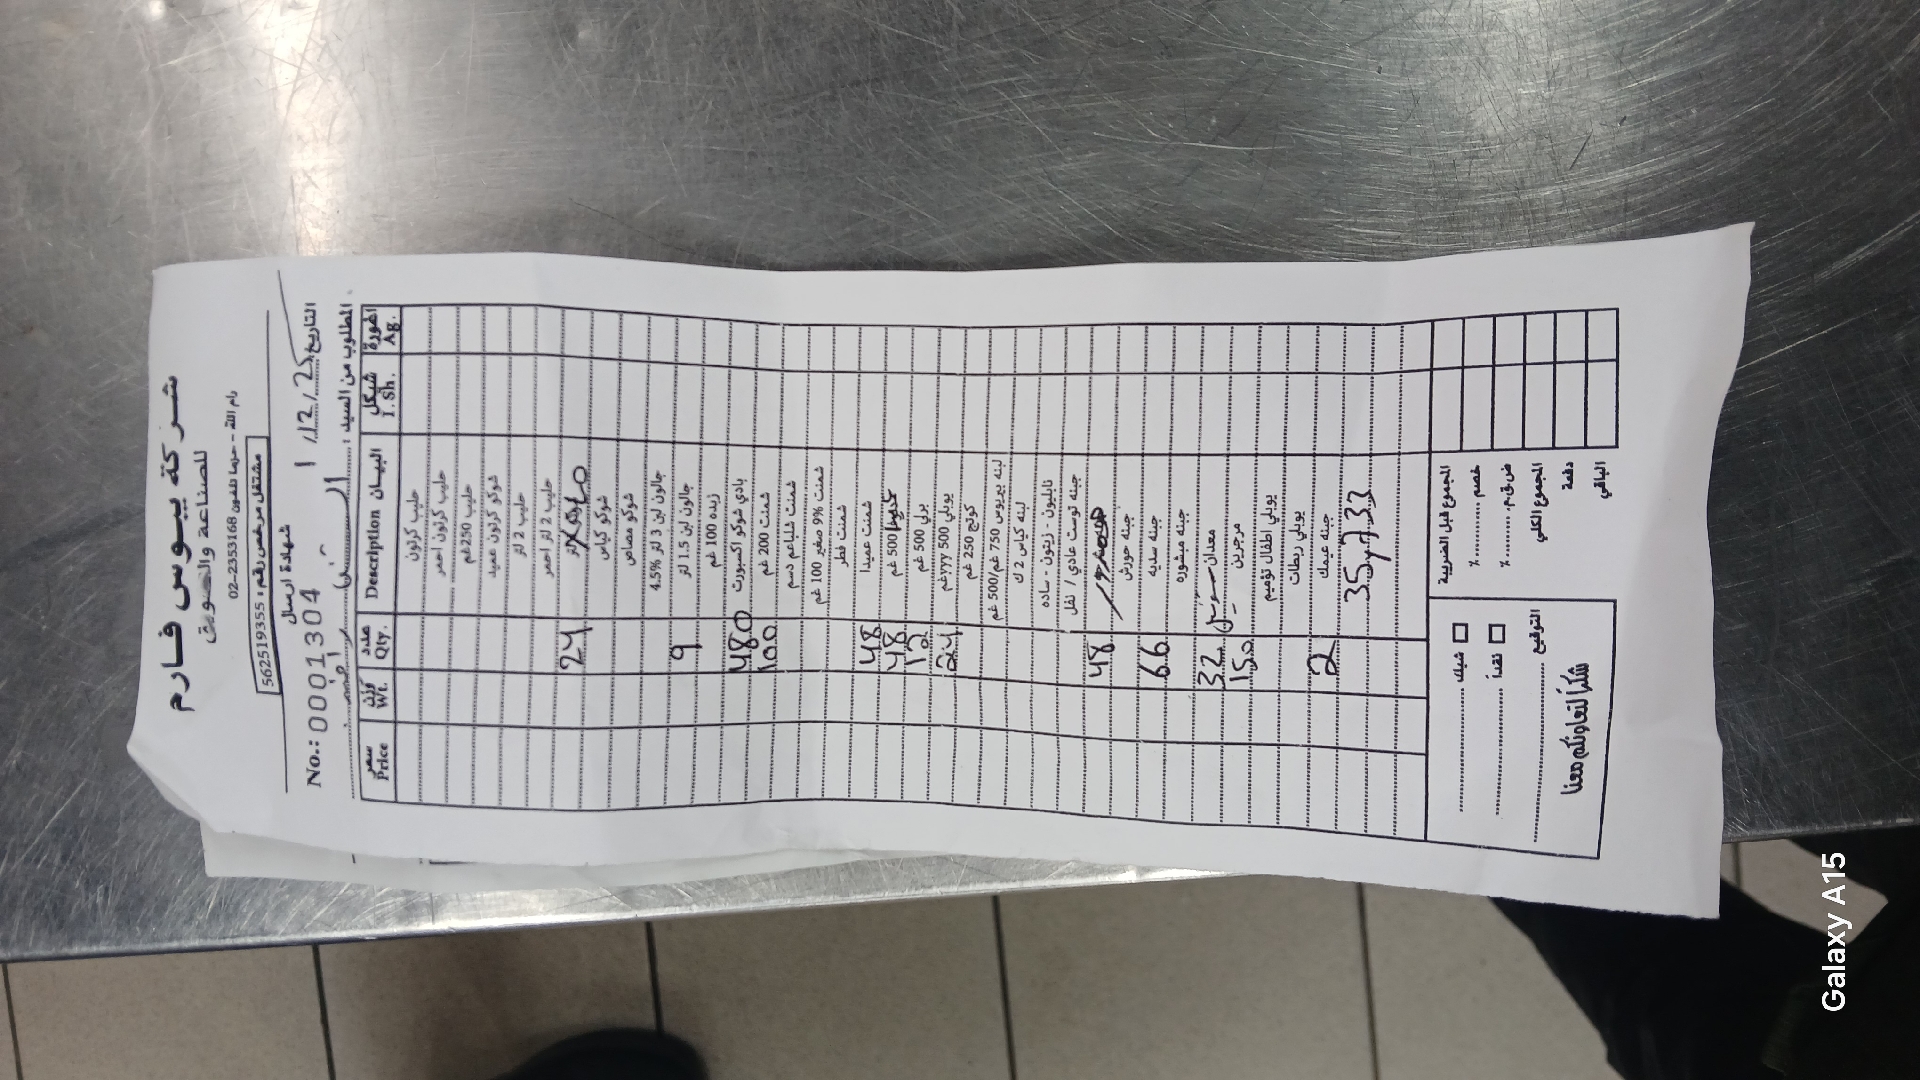 شركة بيوس فارم
للصناعة والتسويق
رام الله - حزما تلفون 02-2353168
مشتغل مرخص رقم: 562519355
شهادة ارسال
No.: 0001304
التاريخ 1/12/25
المطلوب من السيد:
سعر Price وزن Wt. عدد Qty. البيان Description شيكل I. Sh. اغورة Ag.
حليب كرتون
حليب كرتون احمر
حليب 250غم
شوكو كرتون عميد
حليب 2 لتر
حليب 2 لتر احمر
24
شوكو كياس
شوكو مصاص
جالون لبن 3 لتر 4.5%
9 جالون لبن 1.5 لتر
زبده 100 غم
480 بادي شوكو اكسبورت
100 شمنت 200 غم
شمنت شلباعم دسم
شمنت 9% صغير 100 غم
شمنت فطر
48 شمنت عميدا
48 500 غم
12 برلي 500 غم
24 يوبلي 500 غم
كوتج 250 غم
لبنه بيريوس 750 غم/500 غم
لبنه كياس 2 ك
نابليون - زيتون - ساده
جبنه توست عادي / تفل
48
جبنه حورش
66 جبنه سدابه
جبنه مبشوره
32 معدان
150 مرجرين
يوبلي اطفال تؤميم
يوبلي ربطات
2 جبنه عيمك
35,733
المجموع قبل الضريبة
خصم ........... %
ض.ق.م. ......... %
المجموع الكلي
دفعة
الباقي
شيك
نقداً
التوقيع
شكراً لتعاونكم معنا
Galaxy A15